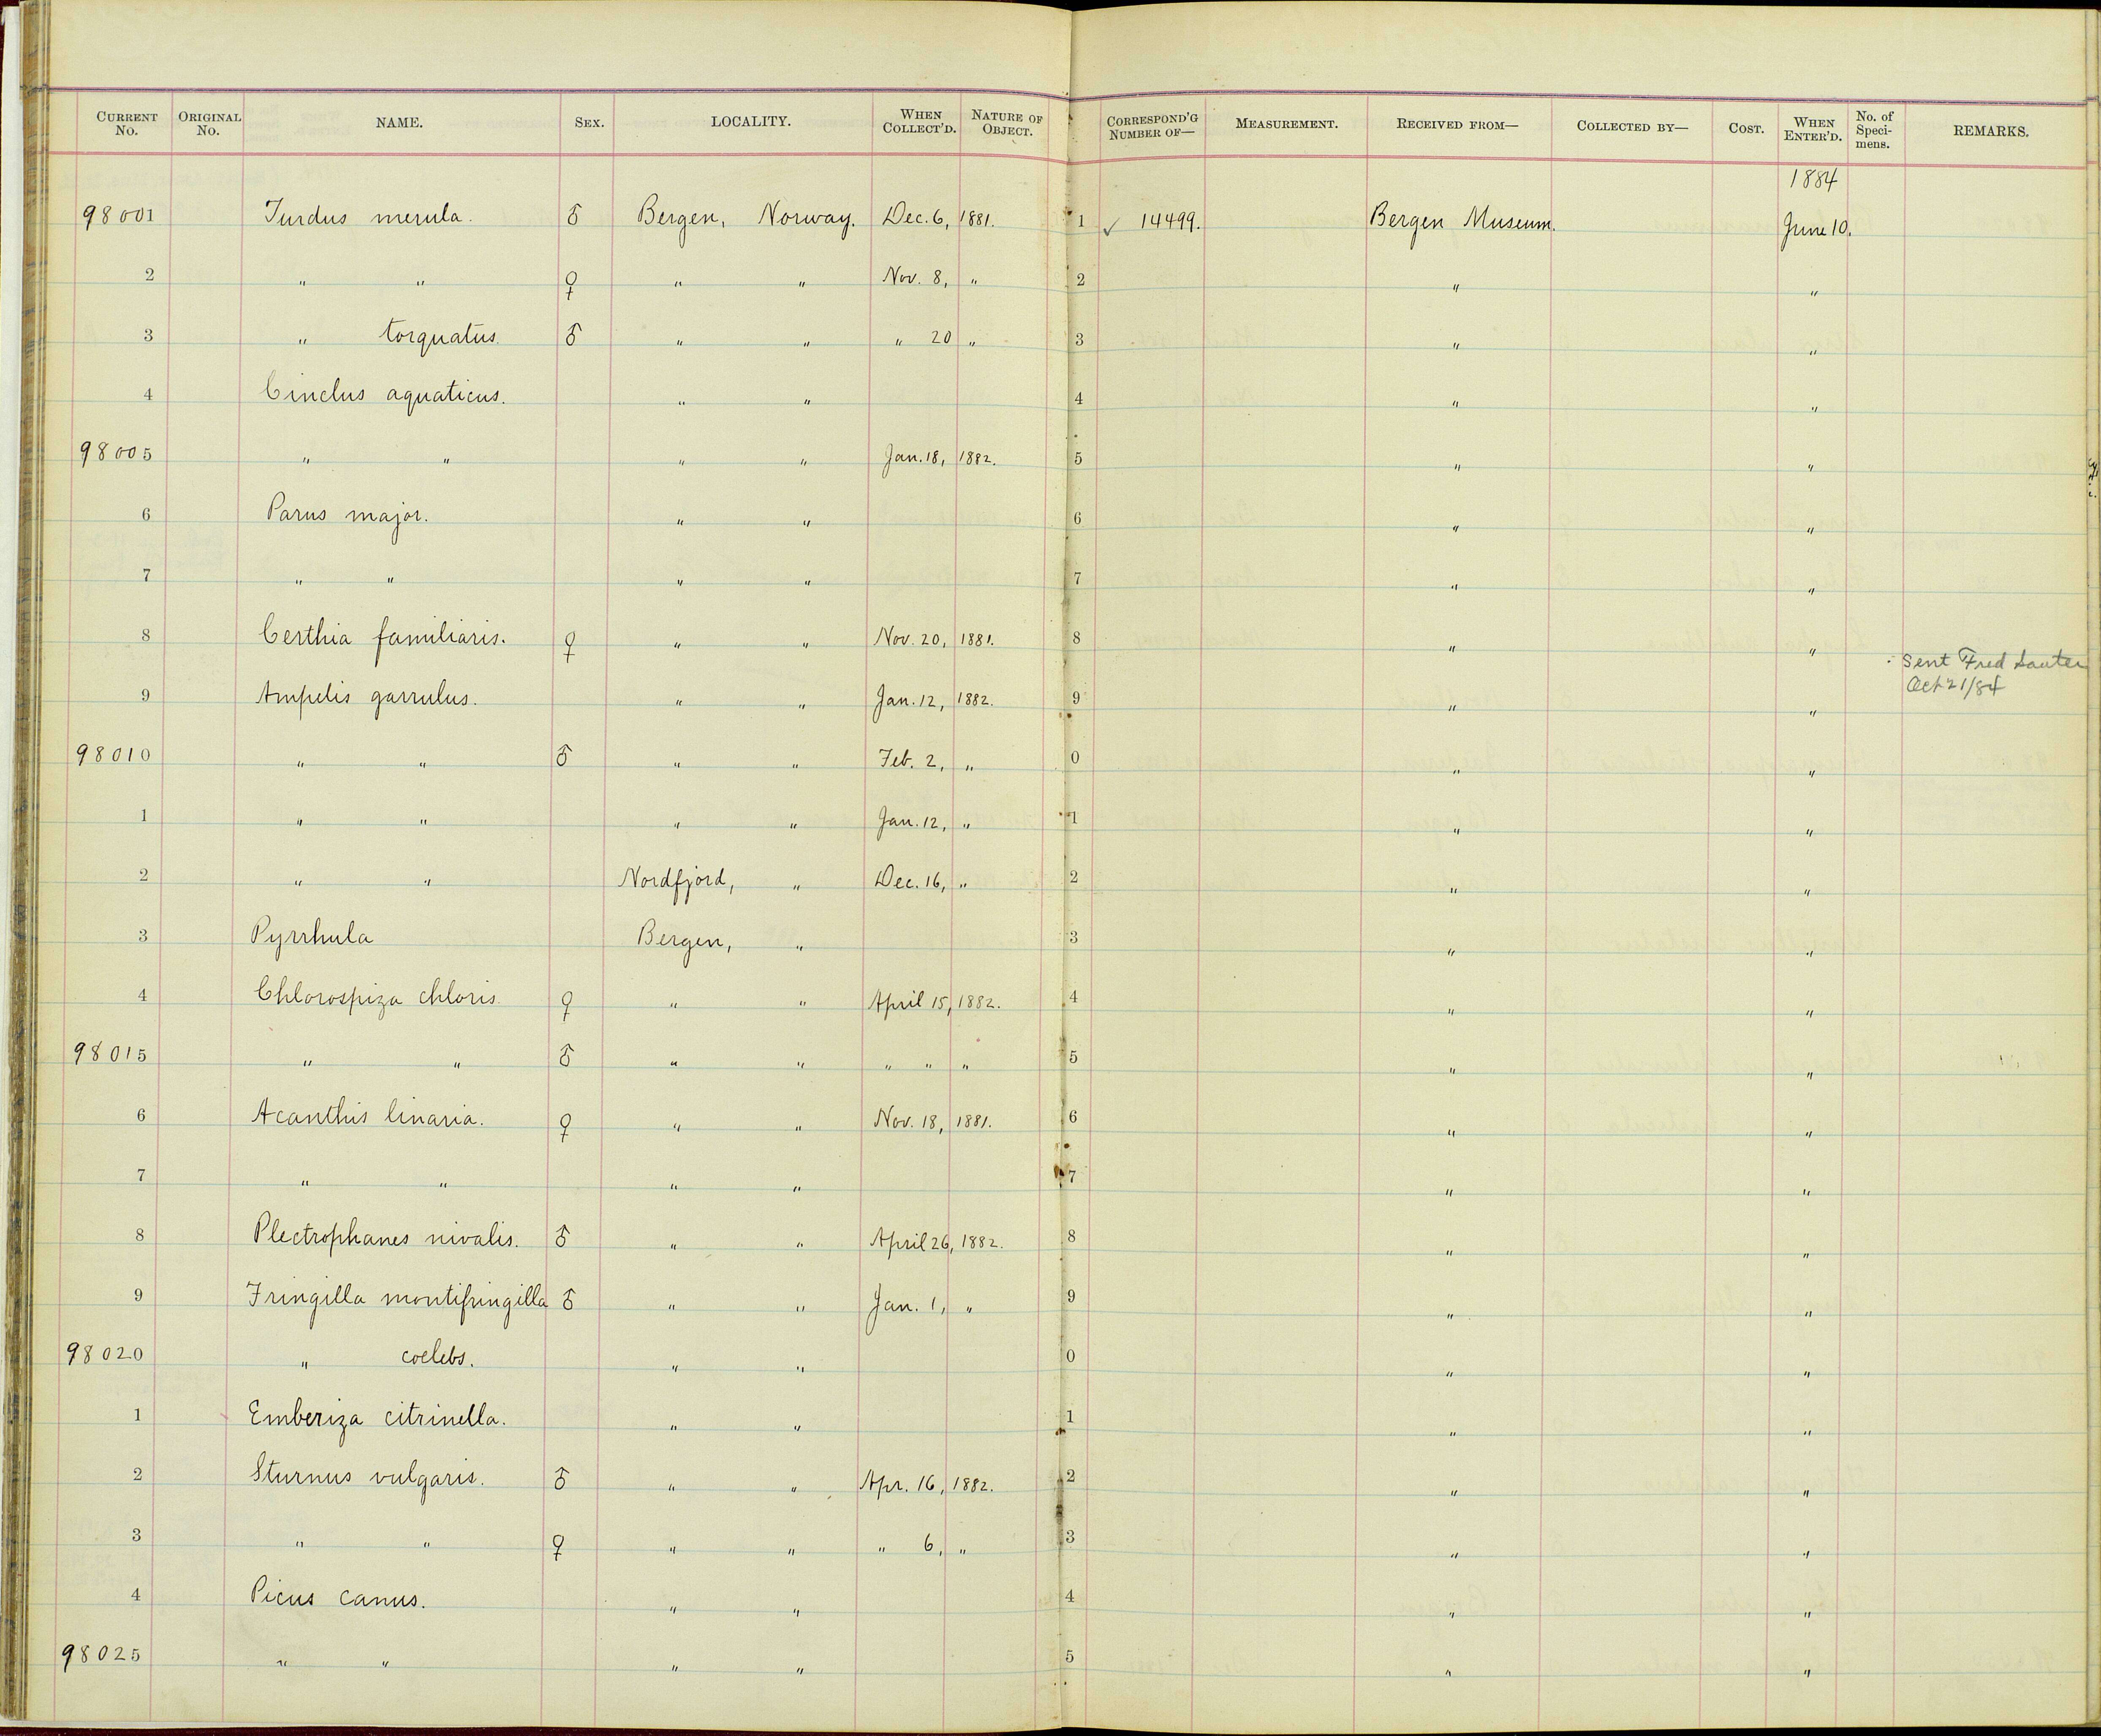 CURRENT No. ORIGINAL No. NAME. SEX. LOCALITY. WHEN COLLECT'D. NATURE OF OBJECT. CORRESPOND'G NUMBER OF— MEASUREMENT. RECEIVED FROM— COLLECTED BY— COST. WHEN ENTER'D. No. of Speci-mens. REMARKS.
1884
98001 Turdus merula. ♂ Bergen, Norway. Dec. 6, 1881. 1 ✓ 14499. Bergen Museum. June 10.
2 " " ♀ " " Nov. 8, " 2 " "
3 " torquatus ♂ " " " 20 " 3 " "
4 Cinclus aquaticus. " " 4 " "
98005 " " " " Jan. 18, 1882. 5 " "
6 Parus major. " " 6 " "
7 " " " " 7 " "
8 Certhia familiaris. ♀ " " Nov. 20, 1881. 8 " "
Sent Fred
Oct 21/84
9 Ampelis garrulus. " " Jan. 12, 1882. 9 " "
98010 " " ♂ " " Feb. 2, " 0 " "
1 " " " " Jan. 12, " 1 " "
2 " " Nordfjord, " Dec. 16, " 2 " "
3 Pyrrhula Bergen, " 3 " "
4 Chlorospiza chloris ♀ " " April 15, 1882. 4 " "
98015 " " ♂ " " " " " 5 " "
6 Acanthis linaria. ♀ " " Nov. 18, 1881. 6 " "
7 " " " " 7 " "
8 Plectrophanes nivalis. ♂ " " April 26, 1882. 8 " "
9 Fringilla montifringilla ♂ " " Jan. 1, " 9 " "
98020 " coelebs. " " 0 " "
1 Emberiza citrinella. " " 1 " "
2 Sturnus vulgaris. ♂ " " Apr. 16, 1882. 2 " "
3 " " ♀ " " " 6, " 3 " "
4 Picus canus. " " 4 " "
98025 " " " " 5 " "